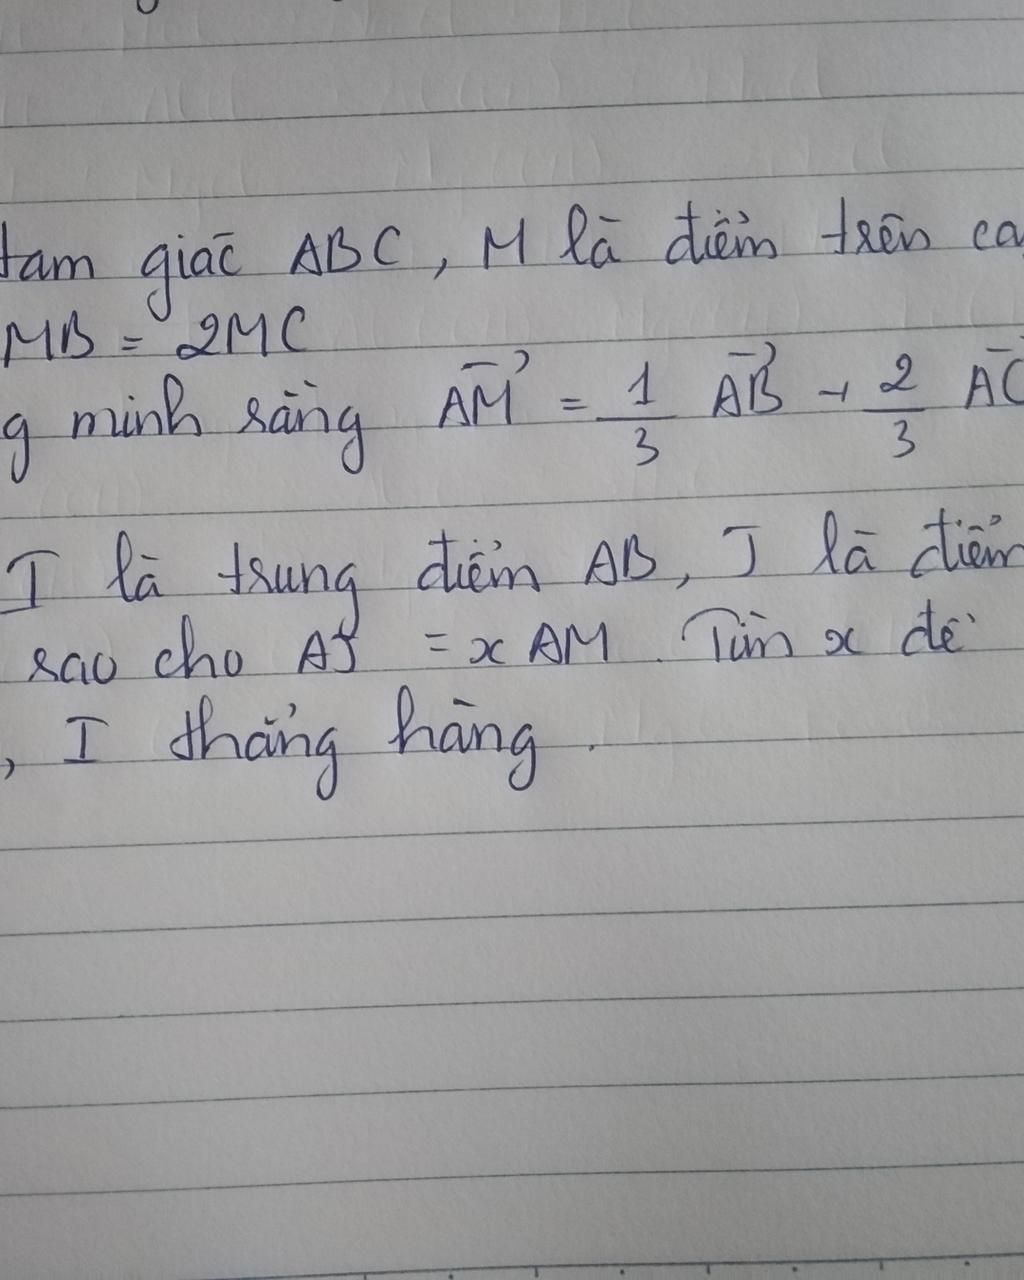 tam giác ABC, M là điểm trên cạ
MB = 2MC
g minh rằng AM = 1/3 AB + 2/3 AC
I là trung điểm AB, J là điểm
sao cho AJ = x AM. Tìm x để
, I thẳng hàng.